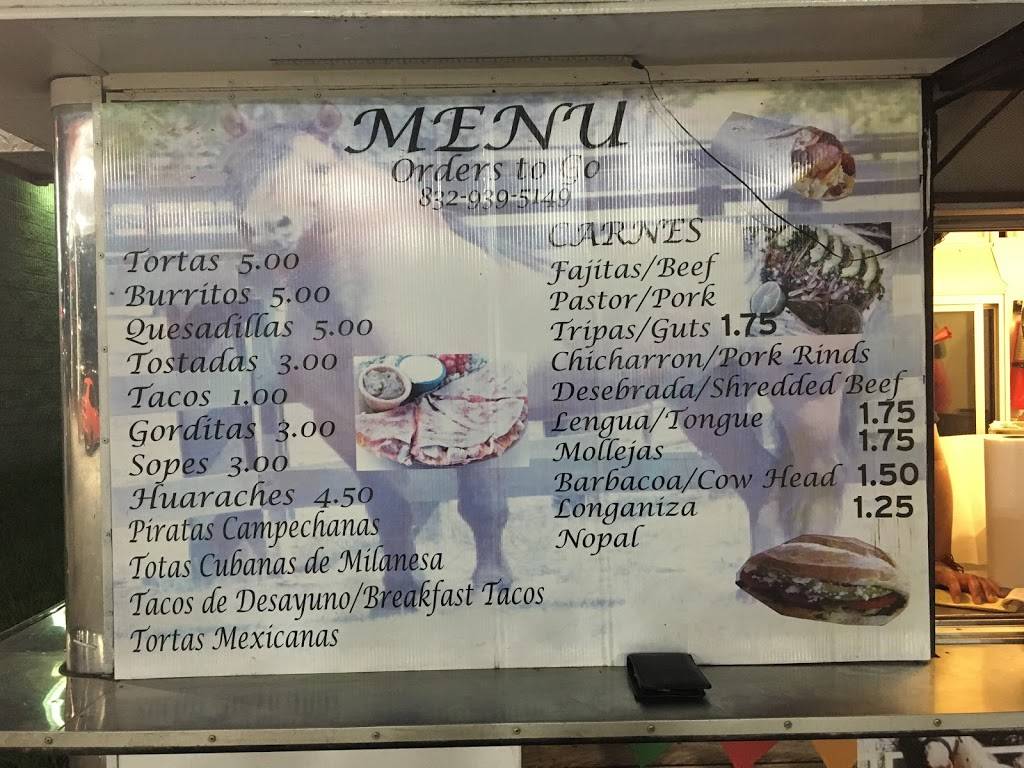 MENU
Orders to Go
832-939-5149
Tortas 5.00
Burritos 5.00
Quesadillas 5.00
Tostadas 3.00
Tacos 1.00
Gorditas 3.00
Sopes 3.00
Huaraches 4.50
Piratas Campechanas
Totas Cubanas de Milanesa
Tacos de Desayuno/Breakfast Tacos
Tortas Mexicanas
CARNES
Fajitas/Beef
Pastor/Pork
Tripas/Guts 1.75
Chicharron/Pork Rinds
Desebrada/Shredded Beef
Lengua/Tongue 1.75
Mollejas 1.75
Barbacoa/Cow Head 1.50
Longaniza 1.25
Nopal